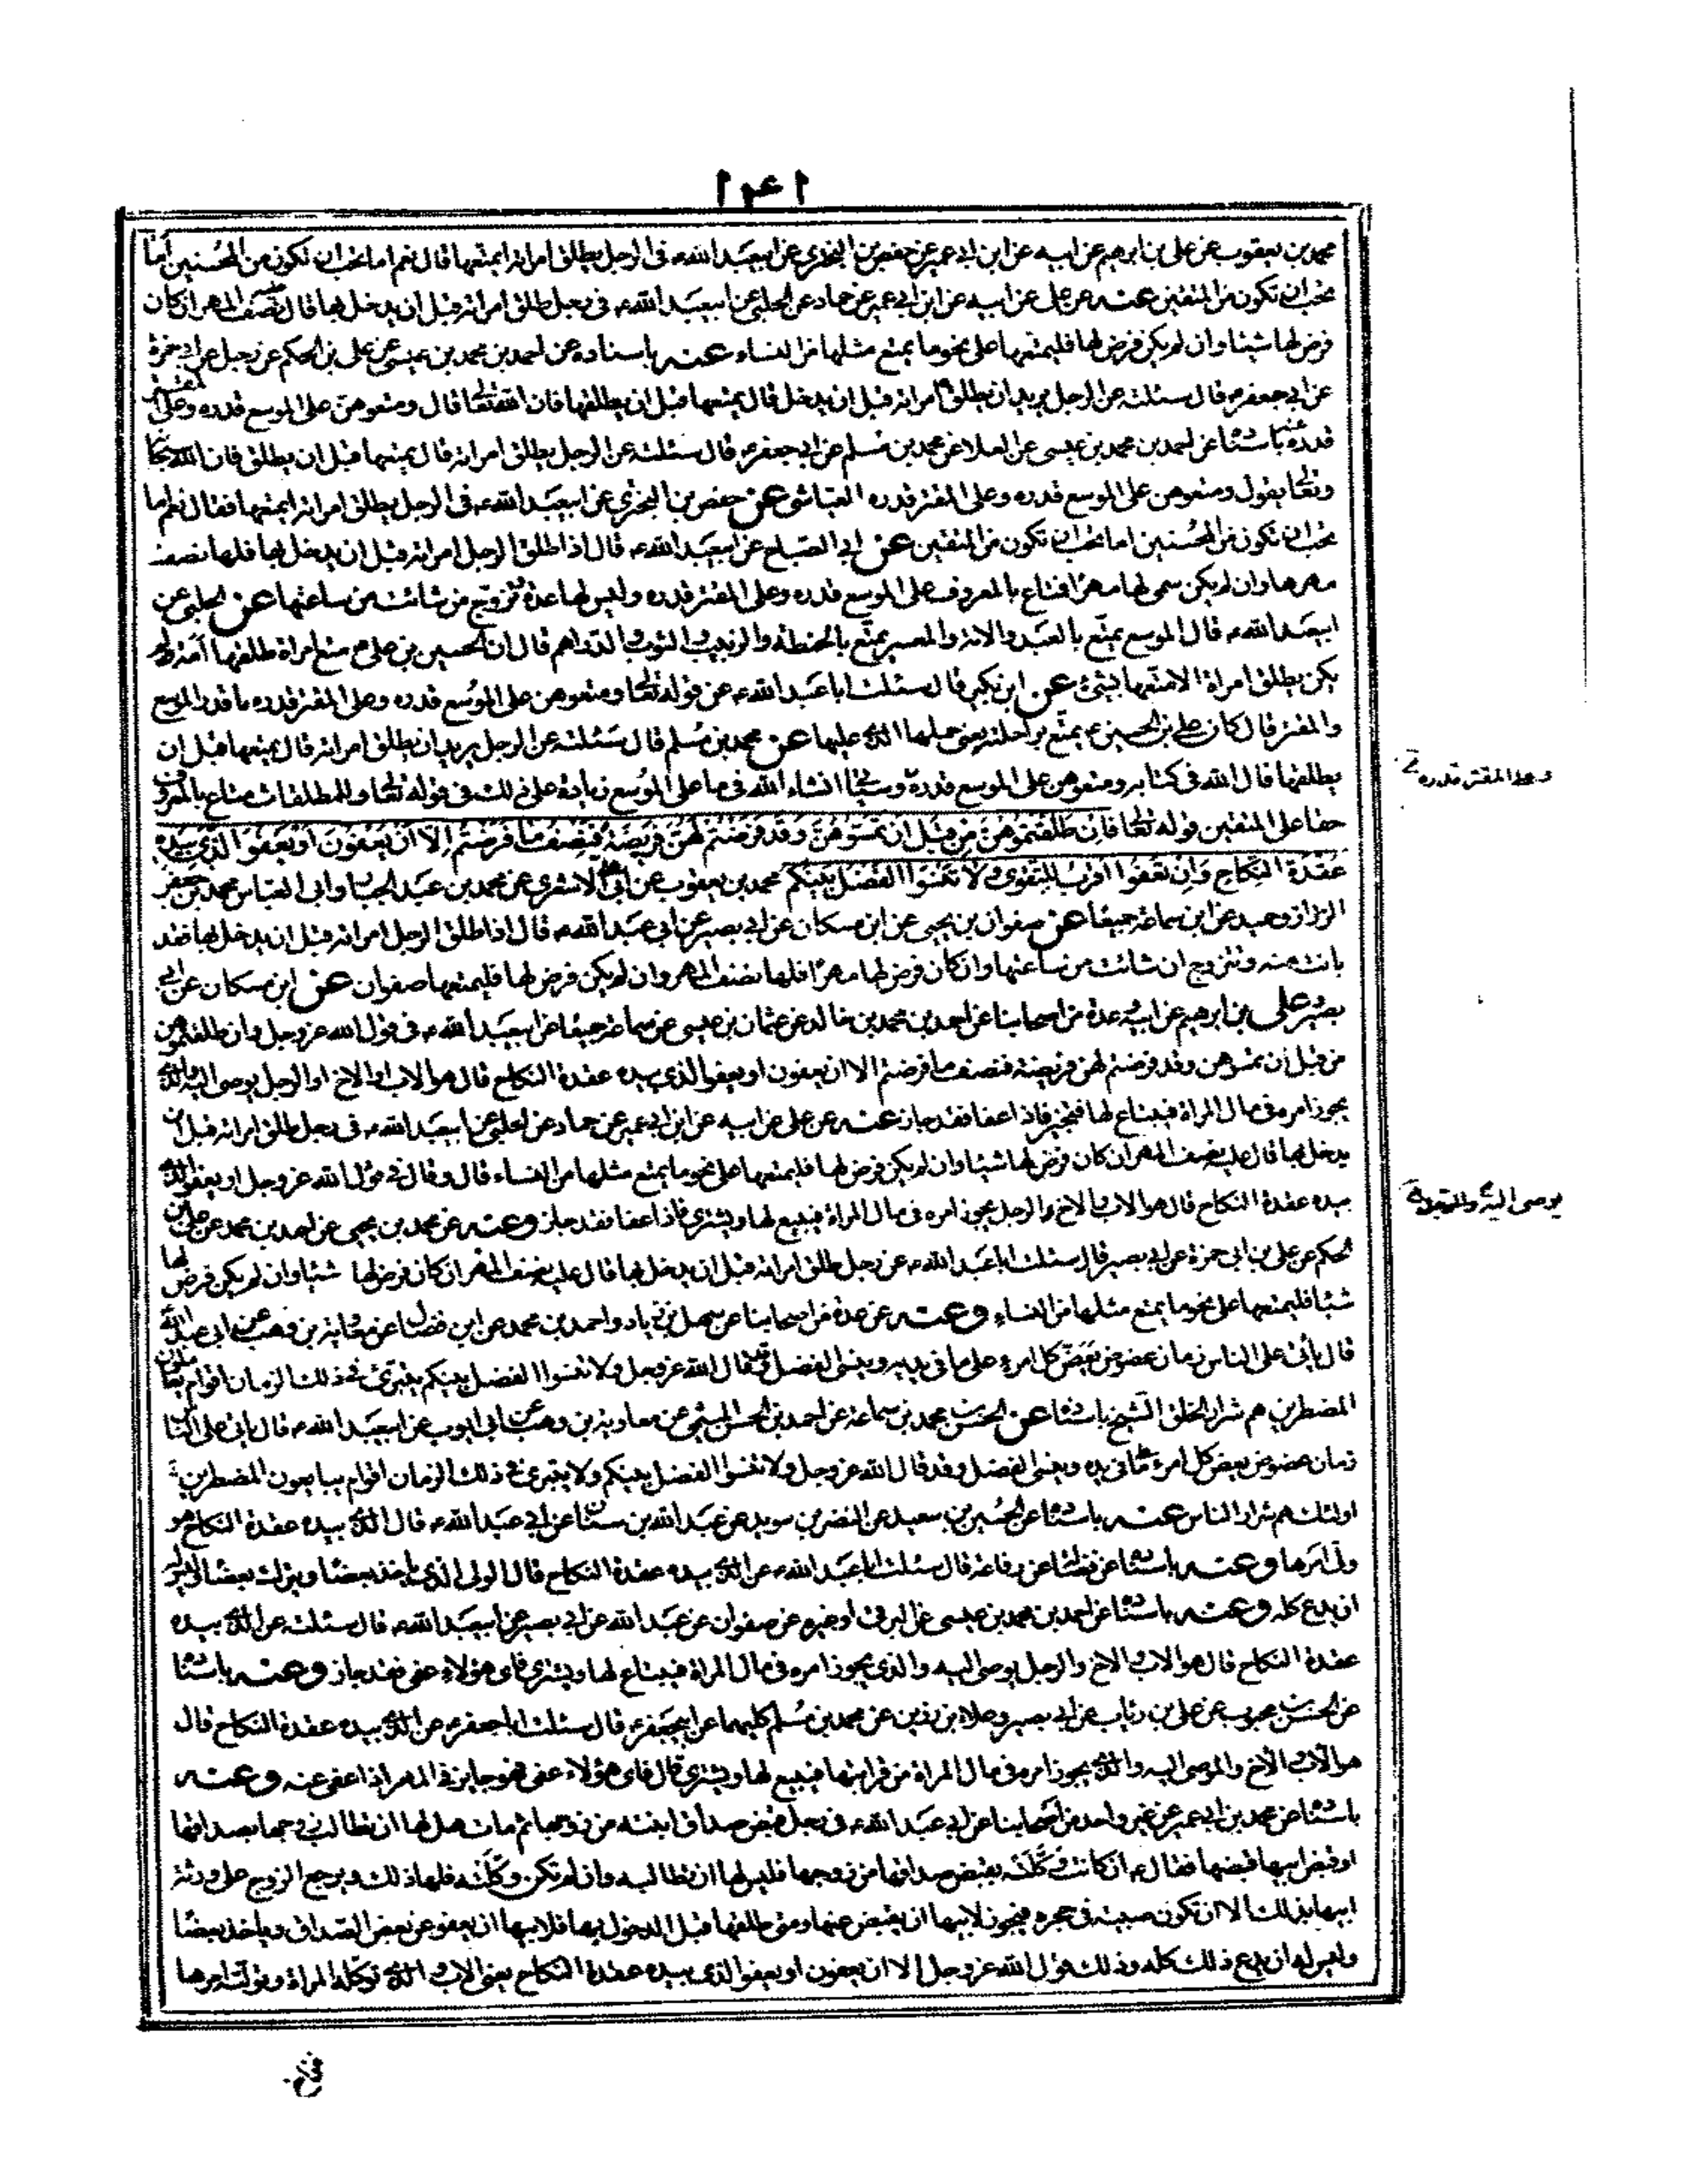 ١٤١
محمد بن يعقوب عن علي بن ابرهيم عن ابيه عن ابن ابي عمير عن حفص بن البختري عن ابيعبد الله ع في الرجل يطلق امراته ايمتعها قال نعم اما تحب ان تكون من المحسنين اما
تحب ان تكون من المتقين عنه عن علي عن ابيه عن ابن ابي عمير عن حماد عن الحلبي عن ابيعبد الله ع في رجل طلق امراته قبل ان يدخل بها قال نصف المهر ان كان
فرض لها شيئا وان لم يكن فرض لها فليمتعها على نحو ما يمتع مثلها من النساء عنه باسناده عن احمد بن محمد بن عيسى عن علي بن الحكم عن رجل عن ابي حمزة
عن ابي جعفر ع قال سئلته عن الرجل يريد ان يطلق امراته قبل ان يدخل قال يمتعها قبل ان يطلقها فان الله تعالى قال ومتعوهن على الموسع قدره وعلى المقتر
قدره عنه باسناده عن احمد بن محمد بن عيسى عن العلا عن محمد بن مسلم عن ابي جعفر ع قال سئلته عن الرجل يطلق امراته قال يمتعها قبل ان يطلق فان الله تبارك
وتعالى يقول ومتعوهن على الموسع قدره وعلى المقتر قدره العياشي عن حفص بن البختري عن ابيعبد الله ع في الرجل يطلق امراته ايمتعها فقال نعم اما
تحب ان تكون من المحسنين اما تحب ان تكون من المتقين عن ابي الصباح عن ابيعبد الله ع قال اذا طلق الرجل امراته قبل ان يدخل بها فلها نصف
مهرها وان لم يكن سمى لها مهرا فمتاع بالمعروف على الموسع قدره وعلى المقتر قدره وليس لها عدة وتزوج من شائت من ساعتها عن الحلبي عن
ابيعبد الله ع قال الموسع يمتع بالعبد والامة والمعسر يمتع بالحنطة والزبيب والثوب والدراهم قال ان الحسين بن علي ع متع امراة طلقها امة ولم
يكن يطلق امراة الا متعها بشئ عن ابن بكير قال سئلت ابا عبد الله ع عن قوله تعالى ومتعوهن على الموسع قدره وعلى المقتر قدره ما قدر الموسع
والمقتر قال كان علي بن الحسين ع يمتع براحلته يعني حملها الذي عليها عن محمد بن مسلم قال سئلته عن الرجل يريد ان يطلق امراته قال يمتعها قبل ان
يطلقها قال الله في كتابه ومتعوهن على الموسع قدره وسيجئ انشاء الله في ما على الموسع زيادة على ذلك في قوله تعالى وللمطلقات متاع بالمعروف
وعلى المقتر قدره
حقا على المتقين قوله تعالى فان طلقتموهن من قبل ان تمسوهن وقد فرضتم لهن فريضة فنصف ما فرضتم الا ان يعفون او يعفو الذي بيده
عقدة النكاح وان تعفوا اقرب للتقوى ولا تنسوا الفضل بينكم محمد بن يعقوب عن ابي علي الاشعري عن محمد بن عبد الجبار وابي العباس محمد بن جعفر
الرزاز وحميد عن ابن سماعة جميعا عن صفوان بن يحيى عن ابن مسكان عن ابي بصير عن ابي عبد الله ع قال اذا طلق الرجل امراته قبل ان يدخل بها فقد
بانت منه وتتزوج ان شائت من ساعتها وان كان فرض لها مهرا فلها نصف المهر وان لم يكن فرض لها فليمتعها صفوان عن ابن مسكان عن ابي
بصير وعلي بن ابرهيم عن ابيه وعدة من اصحابنا عن احمد بن محمد بن خالد عن عثمان بن عيسى عن سماعة جميعا عن ابيعبد الله ع في قول الله عز وجل وان طلقتموهن
من قبل ان تمسوهن وقد فرضتم لهن فريضة فنصف ما فرضتم الا ان يعفون او يعفوا الذي بيده عقدة النكاح قال هو الاب او الاخ او الرجل يوصى اليه والذي
يجوز امره في مال المراة فيبتاع لها فتجيز فاذا عفا فقد جاز عنه عن علي عن ابيه عن ابن ابي عمير عن حماد عن الحلبي عن ابيعبد الله ع في رجل طلق امراته قبل ان
يدخل بها قال عليه نصف المهر ان كان فرض لها شيئا وان لم يكن فرض لها فليمتعها على نحو ما يمتع مثلها من النساء قال وقال في قول الله عز وجل او يعفو الذي
بيده عقدة النكاح قال هو الاب والاخ والرجل يجوز امره في مال المراة فيبيع لها ويشتري فاذا عفا فقد جاز وعنه عن محمد بن يحيى عن احمد بن محمد عن علي بن
الحكم عن علي بن ابي حمزة عن ابي بصير قال سئلت ابا عبد الله ع عن رجل طلق امراته قبل ان يدخل بها قال عليه نصف المهر ان كان فرض لها شيئا وان لم يكن فرض لها
شيئا فليمتعها على نحو ما يمتع مثلها من النساء وعنه عن عدة من اصحابنا عن سهل بن زياد واحمد بن محمد عن ابن فضال عن معاوية بن وهب عن ابي عبد الله
قال ياتي على الناس زمان عضوض يعض كل امرء على ما في يديه وينسى الفضل وقد قال الله عز وجل ولا تنسوا الفضل بينكم ينبرئ في ذلك الزمان اقوام يعاملون
المضطرين هم شرار الخلق الشيخ باسناده عن الحسن بن محمد بن سماعة عن احمد بن الحسن الميثمي عن معاوية بن وهب عن ابي ايوب عن ابيعبد الله ع قال ياتي على الناس
زمان عضوض يعض كل امرء على ما في يده وينسى الفضل وقد قال الله عز وجل ولا تنسوا الفضل بينكم ولا ينبرئ في ذلك الزمان اقوام يبايعون المضطرين
اولئك هم شرار الناس عنه باسناده عن الحسين بن سعيد عن النضر بن سويد عن عبد الله بن سنان عن ابي عبد الله ع قال الذي بيده عقدة النكاح هو
ولي امرها وعنه باسناده عن فضالة عن رفاعة قال سئلت ابا عبد الله ع عن الذي بيده عقدة النكاح قال الولي الذي ياخذ بعضا ويترك بعضا وليس له
ان يدع كله وعنه باسناده عن احمد بن محمد بن عيسى عن البرقي او غيره عن صفوان عن عبد الله عن ابي بصير عن ابيعبد الله ع قال سئلته عن الذي بيده
عقدة النكاح قال هو الاب والاخ والرجل يوصى اليه والذي يجوز امره في مال المراة فيبتاع لها ويشتري فاى هؤلاء عفى فقد جاز وعنه باسناده
عن الحسن بن محبوب عن علي بن رئاب عن ابي بصير وعلاء بن رزين عن محمد بن مسلم كليهما عن ابيجعفر ع قال سئلت ابا جعفر ع عن الذي بيده عقدة النكاح قال
هو الاب والاخ والموصى اليه والذي يجوز امره في مال المراة من قرابتها فيبيع لها ويشتري قال فاى هؤلاء عفى فهو جايز في المهر اذا عفى عنه وعنه
باسناده عن محمد بن ابي عمير عن غير واحد من اصحابنا عن ابي عبد الله ع في رجل قبض صداق ابنته من زوجها ثم مات هل لها ان تطالب زوجها بصداقها
او قبض ابيها قبضها فقال ع ان كانت وكلته بقبض صداقها من زوجها فليس لها ان تطالبه وان لم تكن وكلته فلها ذلك ويرجع الزوج على ورثة
ابيها بذلك الا ان تكون صبية في حجره فيجوز لابيها ان يقبض عنها ومتى طلقها قبل الدخول بها فلابيها ان يعفو عن بعض الصداق وياخذ بعضا
وليس له ان يدع ذلك كله وذلك قول الله عز وجل الا ان يعفون او يعفوا الذي بيده عقدة النكاح يعني الاب والذي توكله المراة وتوليه امرها